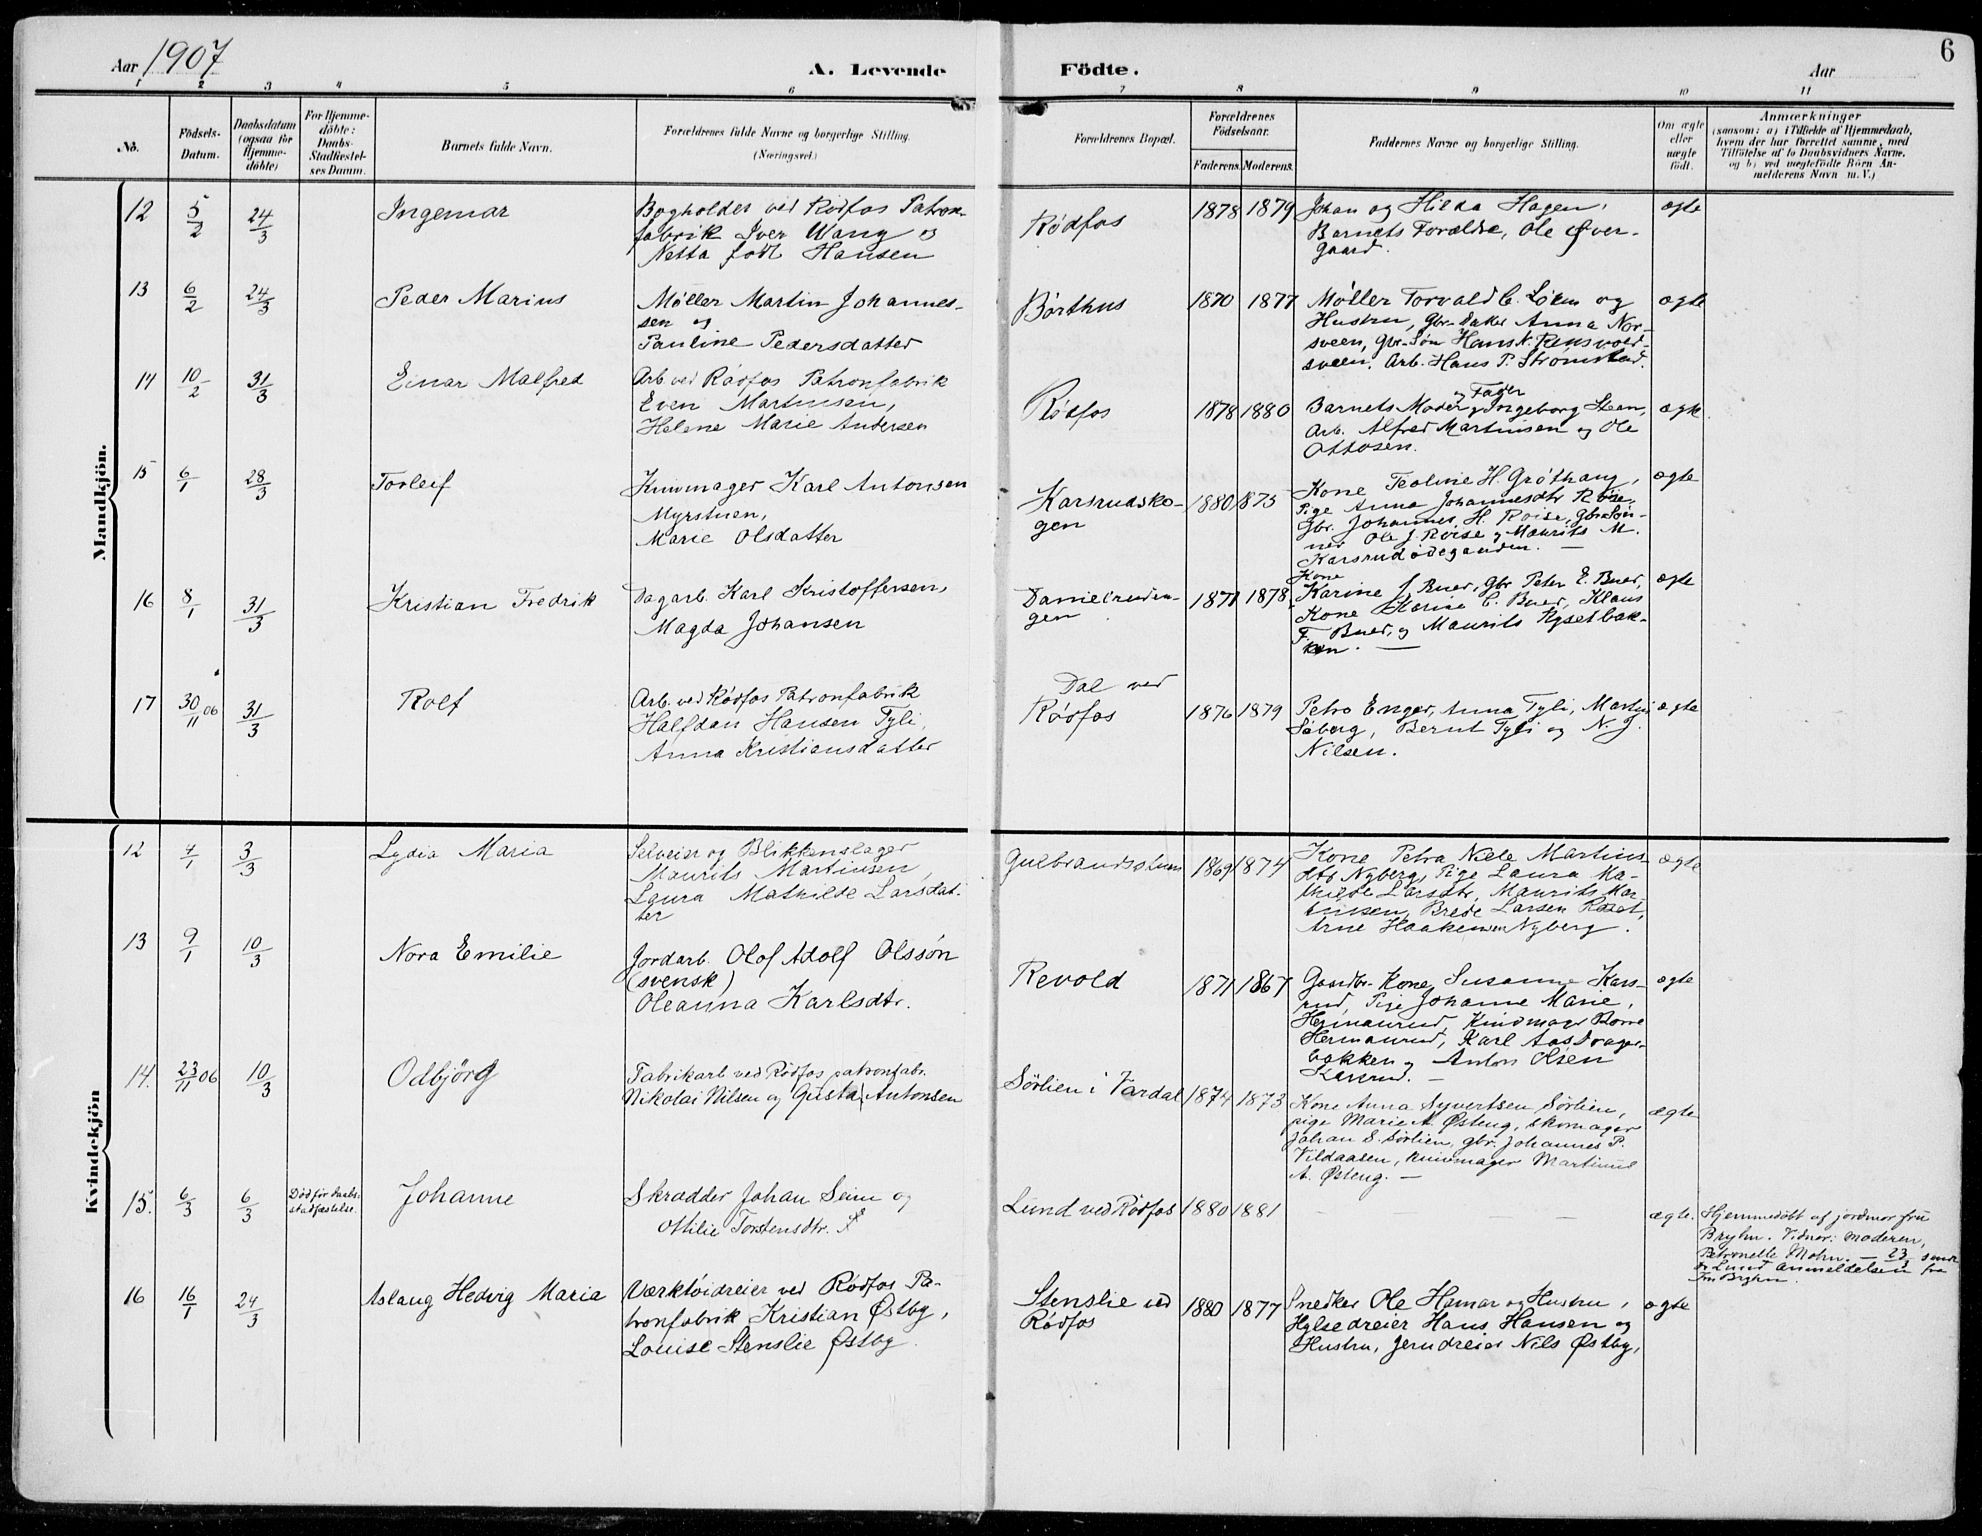 Aar 1907
A. Levende
Födte.
Aar
6
1 2 3 4 5 6 7 8 9 10 11
No.
Födsels-
Datum.
Daabsdatum
(ogsaa for
Hjemme-
döbte)
For Hjemme-
döbte:
Daabs-
Stadfæstel-
ses Datum.
Barnets fulde Navn.
Forældrenes fulde Navne og borgerlige Stilling.
(Næringsvei.)
Forældrenes Bopæl.
Forældrenes
Födselsaar.
Faderens. Moderens.
Faddernes Navne og borgerlige Stilling.
Om ægte
eller
uægte
födt.
Anmærkninger
(saasom: a) i Tilfælde af Hjemmedaab,
hvem der har forrettet samme, med
Tilföielse af to Daabsvidners Navne,
og b) ved uægtefödte Börn An-
melderens Navn m. V.)
Mandkjön.
12 5/2 24/3 Ingemar
Bogholder ved Rødfos Patron-
fabrik Iver Wang og
Netta født Hansen
Rødfos
1878 1879
Johan og Hilda Hagen,
Barnets Forældre, Ole Øver-
gaard.
ægte
13 6/2 24/3 Peder Marius
Møller Martin Johannes-
sen og
Pauline Pedersdatter
Børthus
1870 1877
Møller Torvald C. Løken og
Hustru, Gbr.-Datter Anna Nor-
sveen, Gbr.-Søn Hans N. Rensvold-
sveen. Arb. Hans P. Strømstad.
ægte
14 10/2 31/3 Einar Malfred
Arb. ved Rødfos Patronfabrik
Even Martinsen,
Helene Marie Andersen
Rødfos
1878 1880
og Fader
Barnets Moder, Ingeborg Steen,
Arb. Alfred Martinsen og Ole
Ottosen.
ægte
15 6/1 28/3 Torleif
Knivmager Karl Antonsen
Myrstuen,
Marie Olsdatter
Karsrudsko-
gen
1880 1875
Kone Teoline H. Grøthaug,
Pige Anna Johannesdtr Røise,
Gbr. Johannes H. Røise, Gbr. Søn-
ner Ole J. Røise og Maurits M.
Karsrudødegaarden. —
ægte
16 8/1 31/3 Kristian Fredrik
Dagarb. Karl Kristoffersen,
Magda Johansen
Danielruden-
gen
1871 1878
Kone
Karine J. Buer, Gbr Peter E. Buer,
Kone Karine C. Buer, Klaus
F. Buer, og Maurits Nysetbak-
ken. —
ægte
17 30/11 06 31/3 Rolf
Arb. ved Rødfos Patronfabrik
Halfdan Hansen Tyli,
Anna Kristiansdatter
Dal ved
Rødfos
1876 1879
Petra Enger, Anna Tyli, Martin
Søberg, Bernt Tyli og N. J.
Nilsen.
ægte
Kvindekjön
12 7/1 3/3 Lydia Maria
Selveier og Blikkenslager
Maurits Martinsen,
Laura Mathilde Larsdat-
ter
Gulbrandsstuen
1869 1874
Kone Petra Niele Martins-
dtr Nyberg, Pige Laura Ma-
thilde Larsdtr, Maurits Mar-
tinsen, Brede Larsen Roset,
Arne Haakensen Nyberg.
ægte
13 9/1 10/3 Nora Emilie
Jordarb. Olof Adolf Olssön
(svensk)
Oleanna Karlsdtr.
Revold
1871 1867
Gaardbr. Kone Susanne Kars-
rud, Pige Johanne Marie
Hermanrud, Knivmager Børre
Hermanrud, Karl Aasdrager-
bakken og Anton Olsen
Karsrud. —
ægte
14. 23/11 06 10/3 Odbjörg
Fabrikarb ved Rødfos patronfabr.
Nikolai Nilsen og Gusta Antonsen
Sörlien i Vardal
1874 1873
Kone Anna Syvertsen Sörlien,
pige Marie A. Østeng, skomager
Johan S. Sörlien, gbr. Johannes P.
Vildaasen, knivmager Martinius
A. Østeng. —
ægte
15. 6/3 6/3 Død før daabs-
stadfæstelse.
Johanne
Skrædder Johan Seim og
Ottilie Torstensdtr.
Lund ved Rødfos
1880 1881
— — — — —
ægte.
Hjemmedøbt af jordmor fru
Bryhn. Vidner: moderen,
Petronelle Mohn. — 23/3 sendt
Lund anmeldelsen fra
Fru Bryhn.
16 16/1 24/3 Aslaug Hedvig Maria
Værktøidreier ved Rødfos Pa-
tronfabrik Kristian Østby,
Louise Stenslie Østby.
Stenslie ved
Rødfos
1880 1877
Snedker Ole Hamar og Hustru,
Hylsedreier Hans Hansen og
Hustru, Jerndreier Nils Østby,
ægte